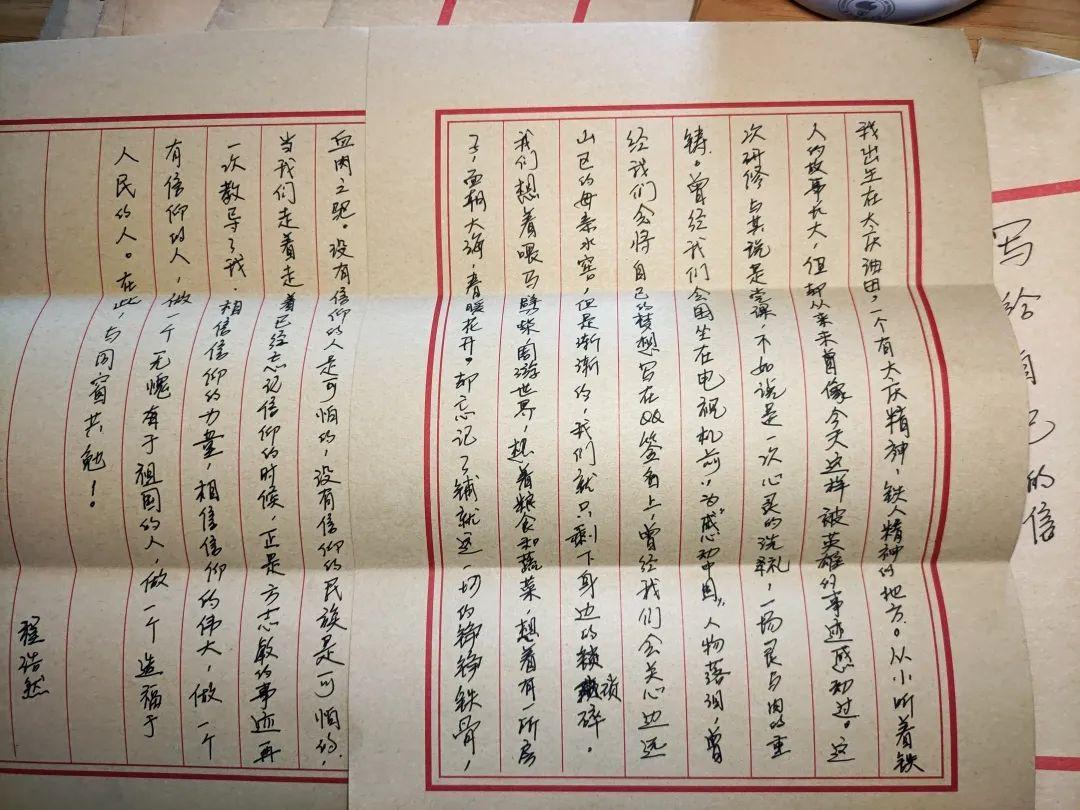 写给自己的信
我出生在大庆油田，一个有大庆精神，铁人精神的地方。从小听着铁
人的故事长大，但却从来未曾像今天这样被英雄的事迹感动过。这
次研修与其说是党课，不如说是一次心灵的洗礼，一场灵与肉的重
铸。曾经我们会围坐在电视机前，为“感动中国”人物落泪，曾
经我们会将自己的梦想写在QQ签名上，曾经我们会关心边远
山区的母亲水窖，但是渐渐的，我们就只剩下身边的琐碎。
我们想着喂马劈柴，周游世界，想着粮食和蔬菜，想着有一所房
子，面朝大海，春暖花开。却忘记了铺就这一切的铮铮铁骨，
血肉之躯。没有信仰的人是可怕的，没有信仰的民族是可怕的，
当我们走着走着已经忘记信仰的时候，正是方志敏的事迹再
一次教导了我，相信信仰的力量，相信信仰的伟大，做一个
有信仰的人，做一个无愧有于祖国的人，做一个造福于
人民的人。在此，与同窗共勉！
程浩然